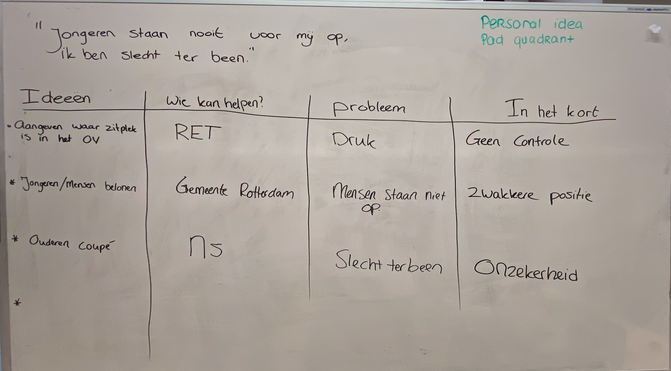 "Jongeren staan nooit voor mij op,
ik ben slecht ter been."
Personal idea
Pad quadrant
Ideeën
Wie kan helpen?
probleem
In het kort
- Aangeven waar zitplek
is in het OV
RET
Druk
Geen Controle
* Jongeren/mensen belonen
Gemeente Rotterdam
Mensen staan niet
op
Zwakkere positie
* Ouderen coupé
ns
Slecht ter been
Onzekerheid
*